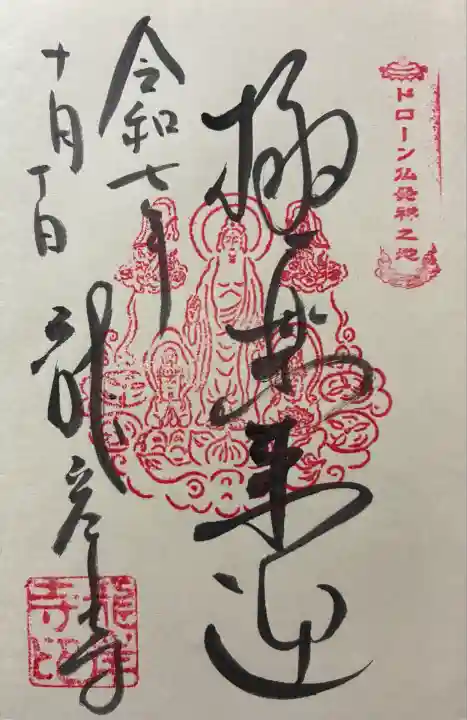 ドローン仏発祥之地
極楽来迎
令和七年
十月一丁日
龍岸寺
龍岸寺印